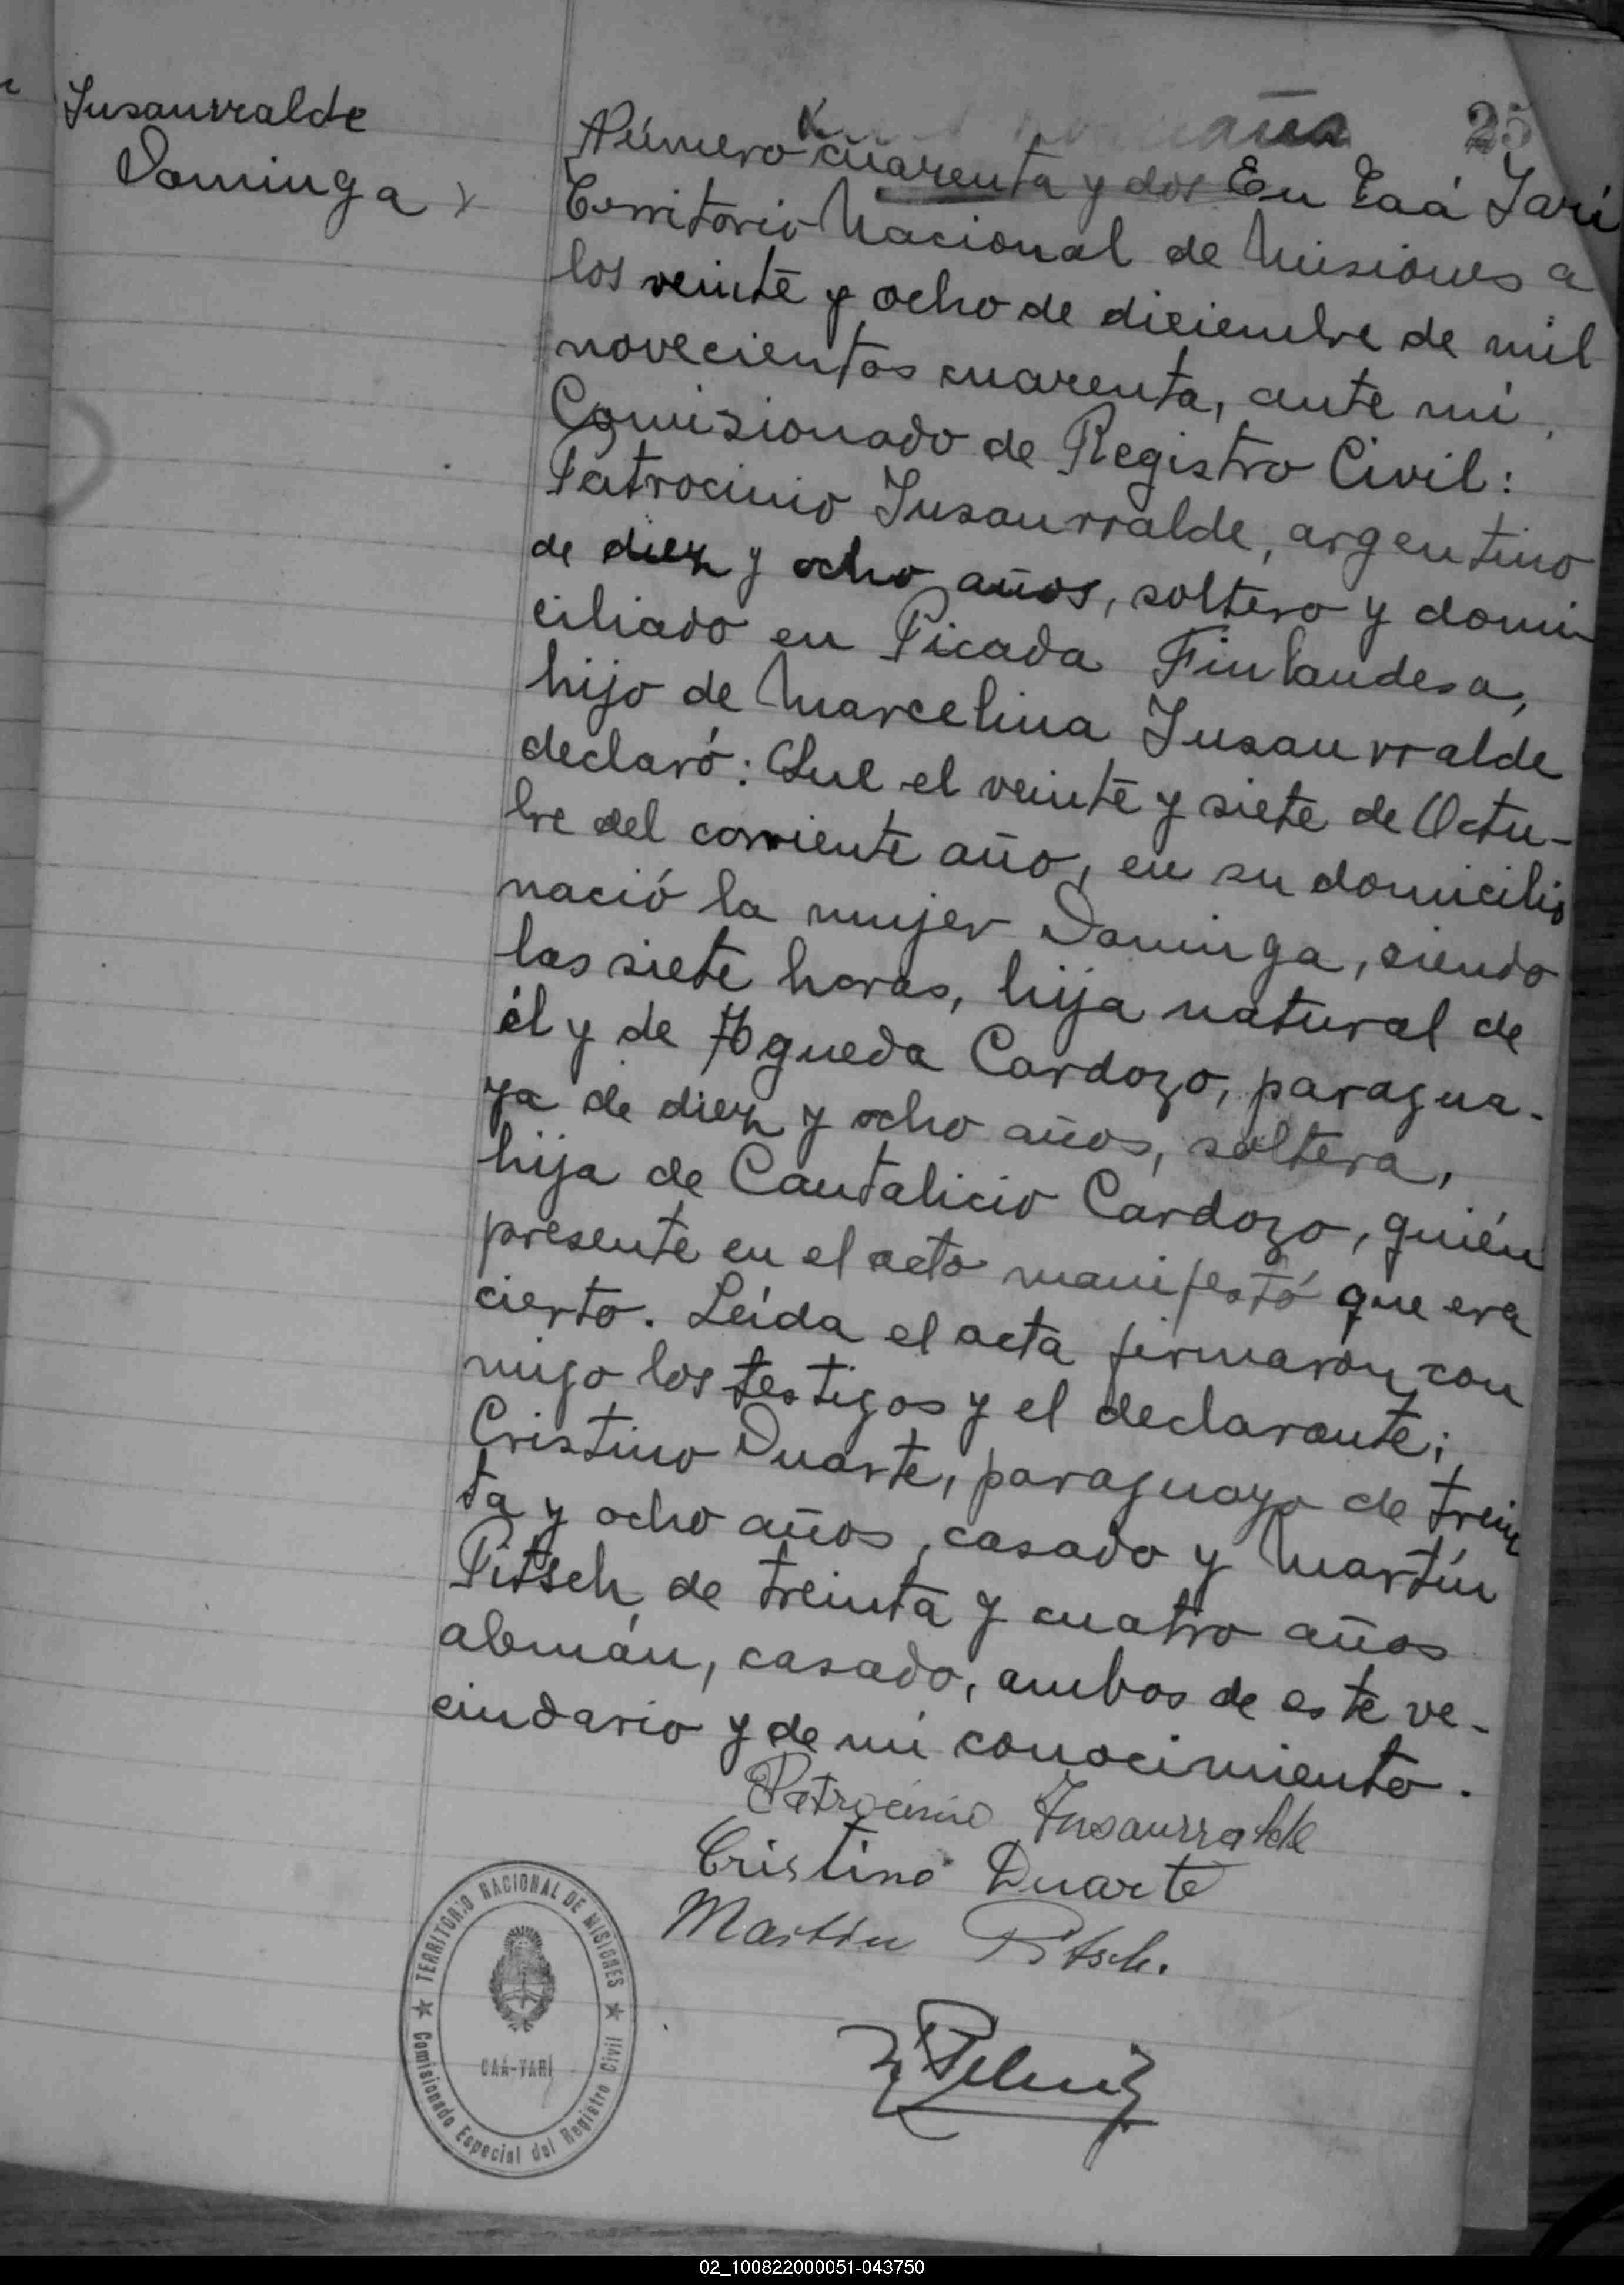 Insaurralde
Dominga x
25
Número cuarenta y dos En Caá Yarí
Territorio Nacional de Misiones a
los veinte y ocho de diciembre de mil
novecientos cuarenta, ante mí,
Comisionado de Registro Civil:
Patrocinio Insaurralde, argentino
de diez y ocho años, soltero y domi-
ciliado en Picada Finlandesa,
hijo de Marcelina Insaurralde
declaró: Que el veinte y siete de Octu-
bre del corriente año, en su domicilio
nació la mujer Dominga, siendo
las siete horas, hija natural de
él y de Agueda Cardozo, paragua-
ya de diez y ocho años, soltera,
hija de Cantalicio Cardozo, quién
presente en el acto manifestó que era
cierto. Leída el acta firmaron con
migo los testigos y el declarante;
Cristino Duarte, paraguayo de trein
ta y ocho años, casado y Martín
Pitsch de treinta y cuatro años
alemán, casado, ambos de este ve-
cindario y de mi conocimiento.
Patrocinio Insaurralde
Cristino Duarte
Martin Pitsch.
TERRITORIO NACIONAL DE MISIONES
CAÁ-YARÍ
Comisionado Especial del Registro Civil
02_100822000051-043750